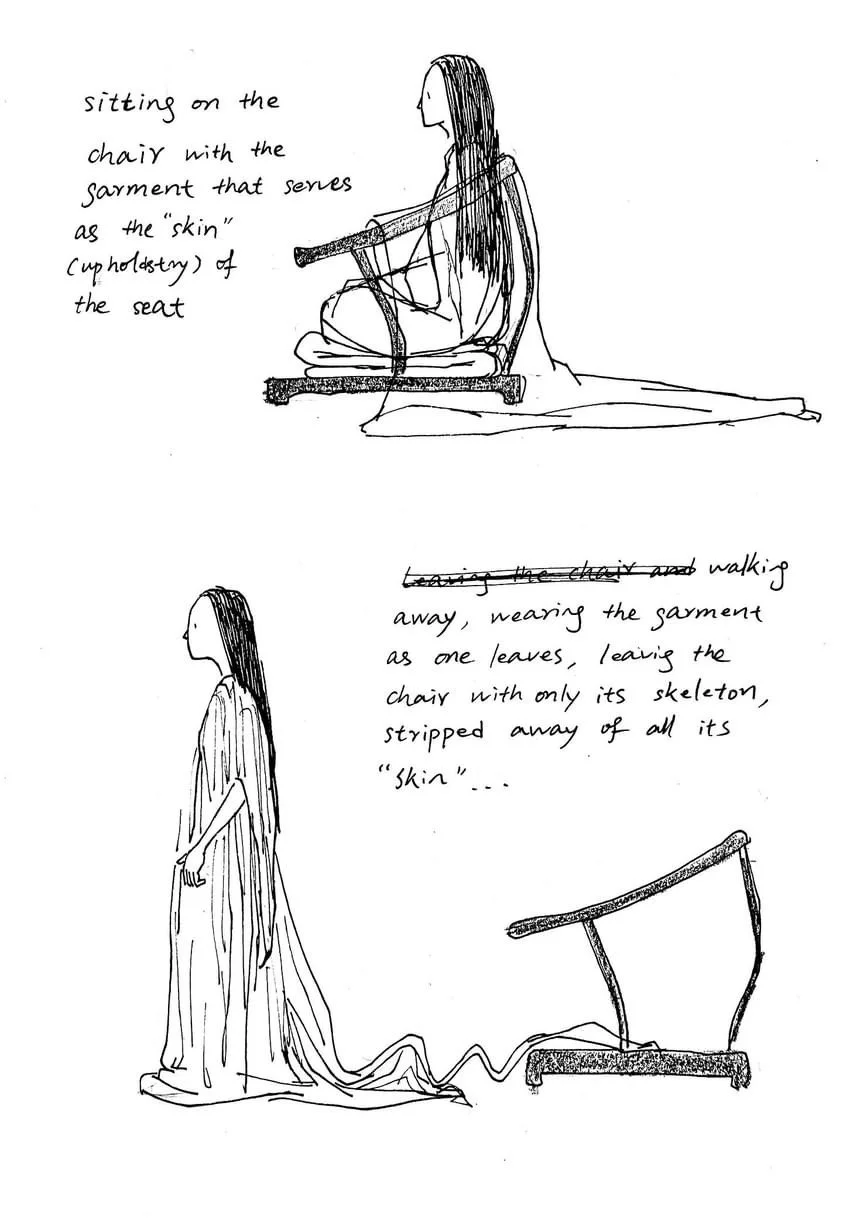 sitting on the
chair with the
garment that serves
as the "skin"
(upholdstry) of
the seat
Leaving the chair and walking
away, wearing the garment
as one leaves, leavig the
chair with only its skeleton,
stripped away of all its
"skin"...